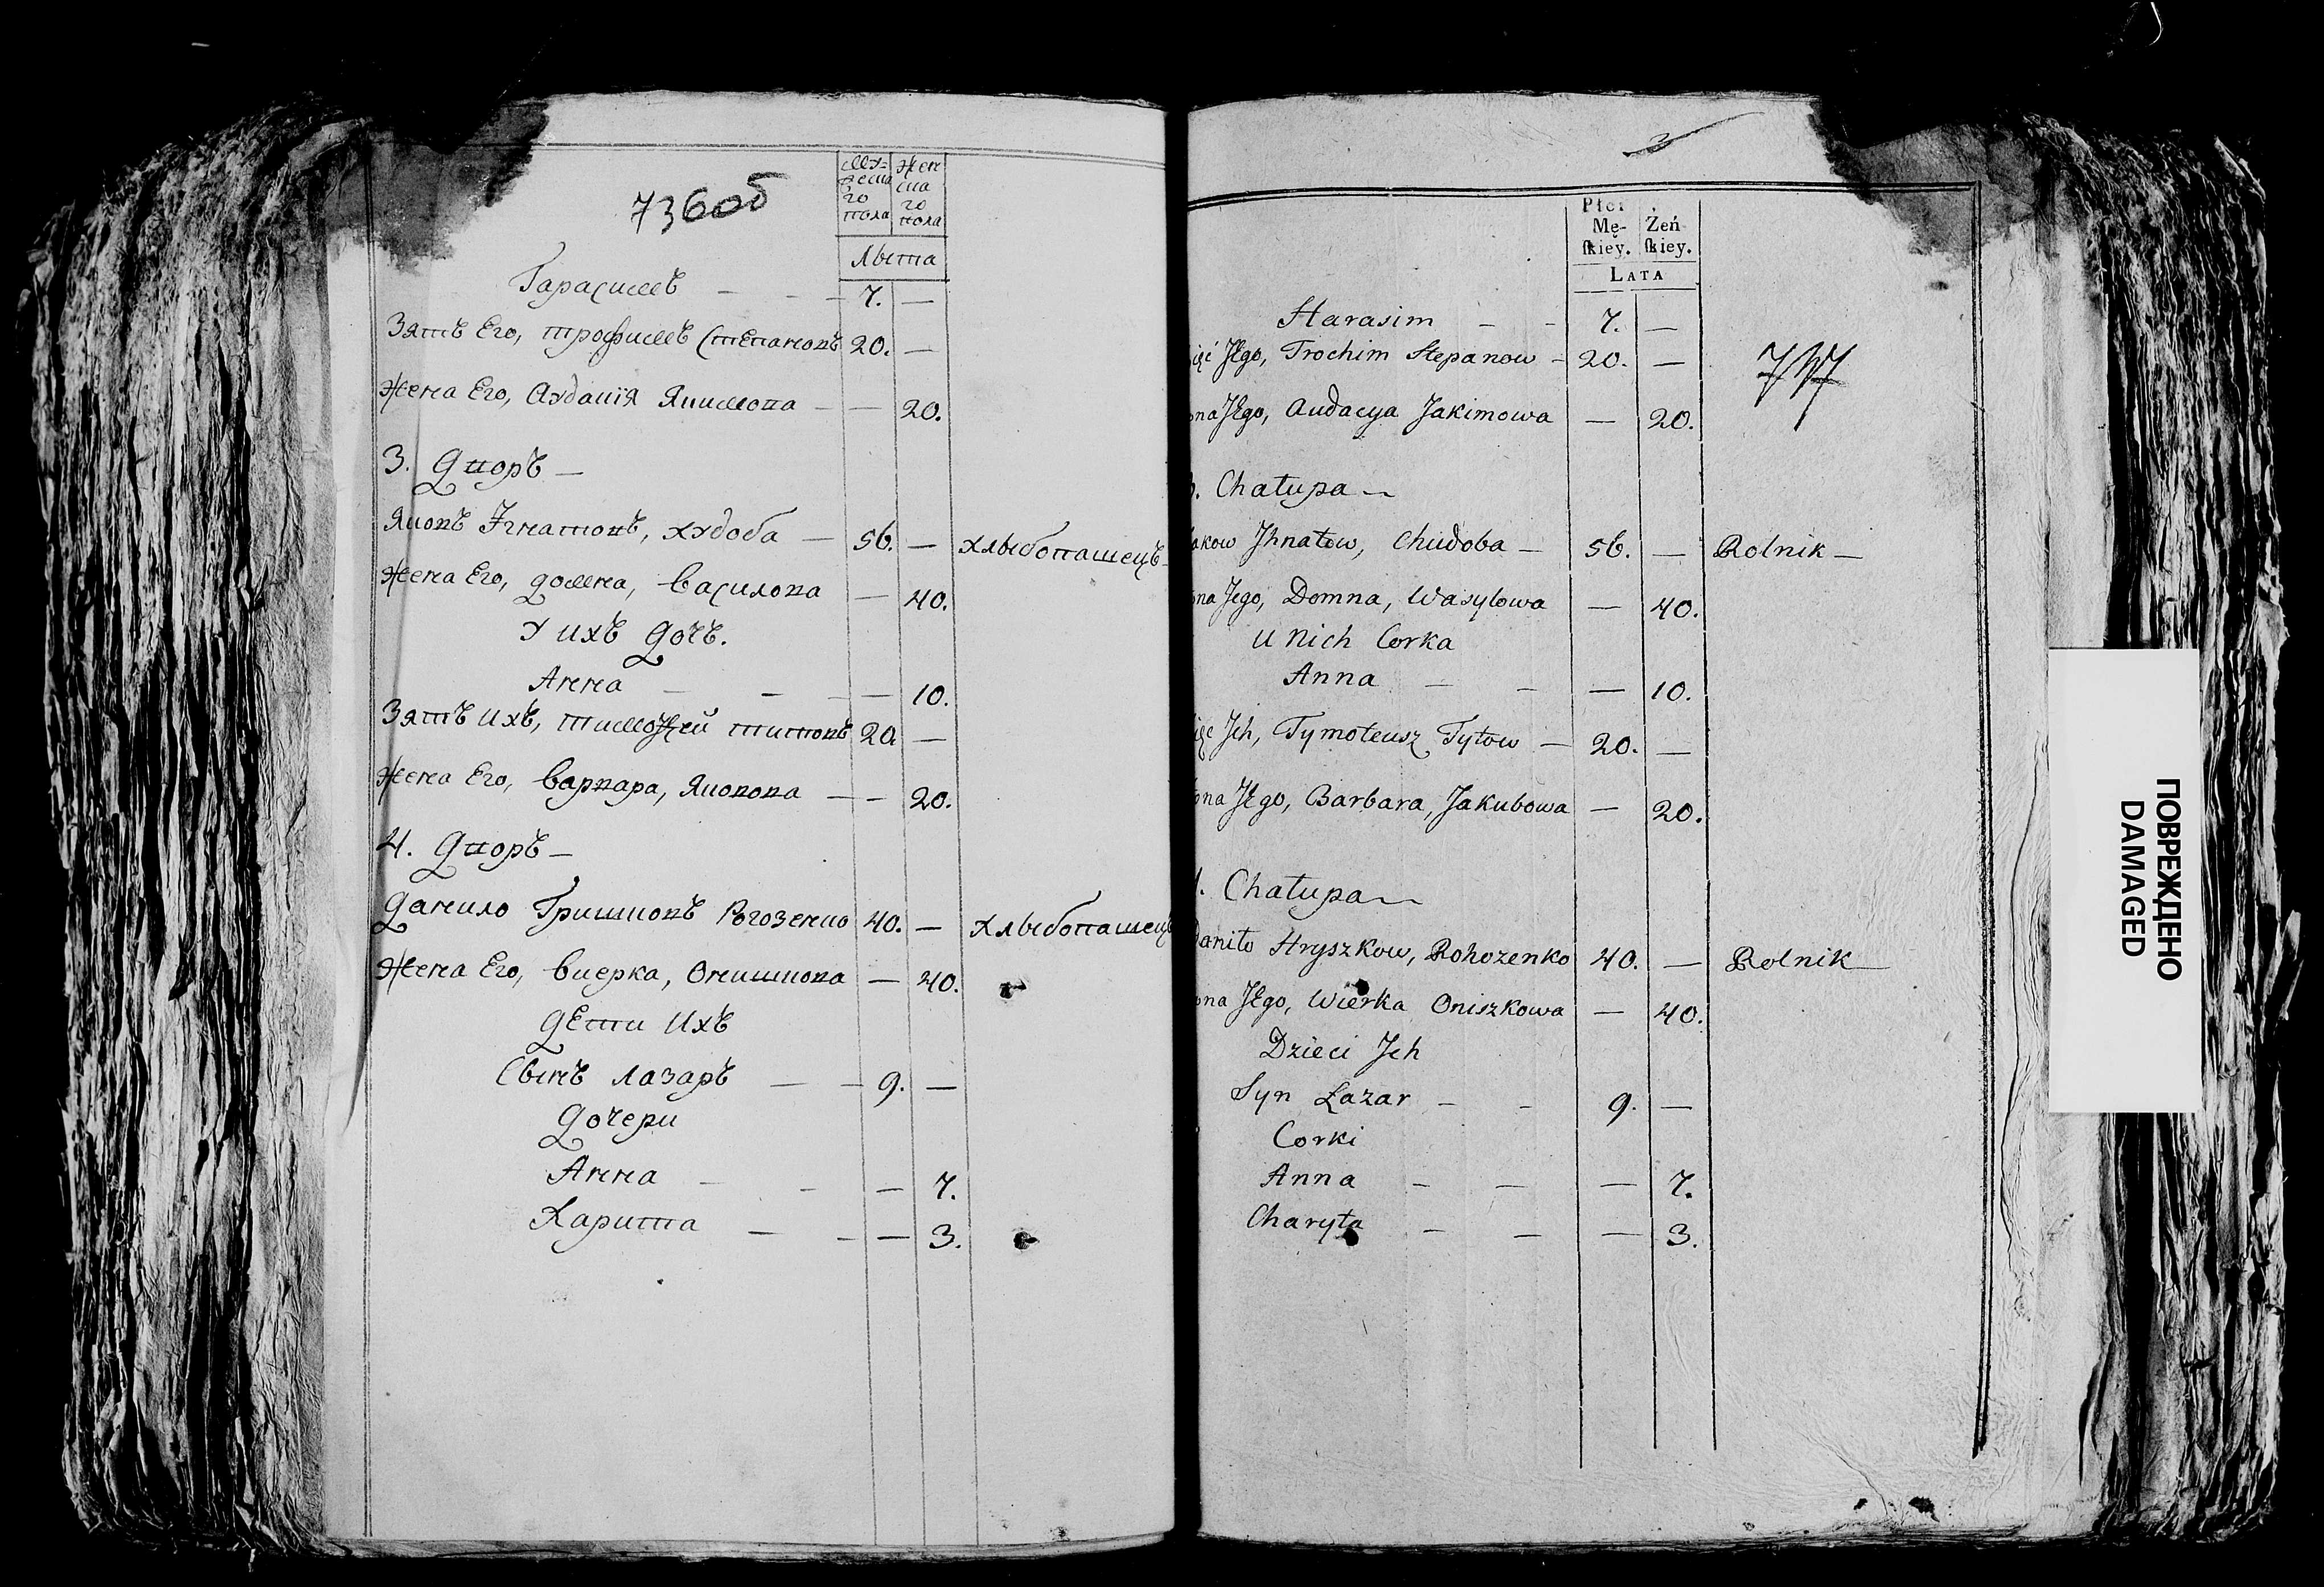 736об
Муже
ска
го
пола
Жен
ска
го
пола
Лѣта
Гарасимъ — 7. —
Зятъ Его, трофимъ Степановъ 20. —
Жена Его, Аудація Якимова — — 20.
3. Дворъ —
Яковъ Игнатовъ, худоба — 56. — хлѣбопашецъ —
Жена Его, домна, василова — 40.
У ихъ дочъ.
Анна — — 10.
Зятъ ихъ, тимофей титовъ 20. —
Жена Его, варвара, Яковова — — 20.
4. Дворъ —
Данило Гришковъ Рогозенко 40. — хлѣбопашецъ
Жена Его, виерка, Онишкова — 40.
дети ихъ
Сынъ лазаръ — — 9. —
Дочери
Анна — — — 7.
Харита — — — 3.
3
Płci
Mę-
ſkiey.
Żeń-
ſkiey.
LATA
Harasim — — 7. —
ięć Jego, Trochim Stepanow — 20. —
737
ona Jego, Audacya Jakimowa — 20.
3. Chałupa —
akow Jhnatow, Chudoba — 56. — Rolnik —
ona Jego, Domna, Wasylowa — 40.
u Nich Corka
Anna — — — 10.
ięc Jch, Tymoteusz Tytow — 20. —
ona Jego, Barbara, Jakubowa — 20.
4. Chałupa —
Daniło Hryszkow, Rohozenko 40. — Rolnik —
ona Jego, Wierka Oniszkowa — 40.
Dzieci Jch
Syn Łazar — — 9. —
Corki
Anna — — — 7.
Charyta — — — 3.
ПОВРЕЖДЕНО
DAMAGED